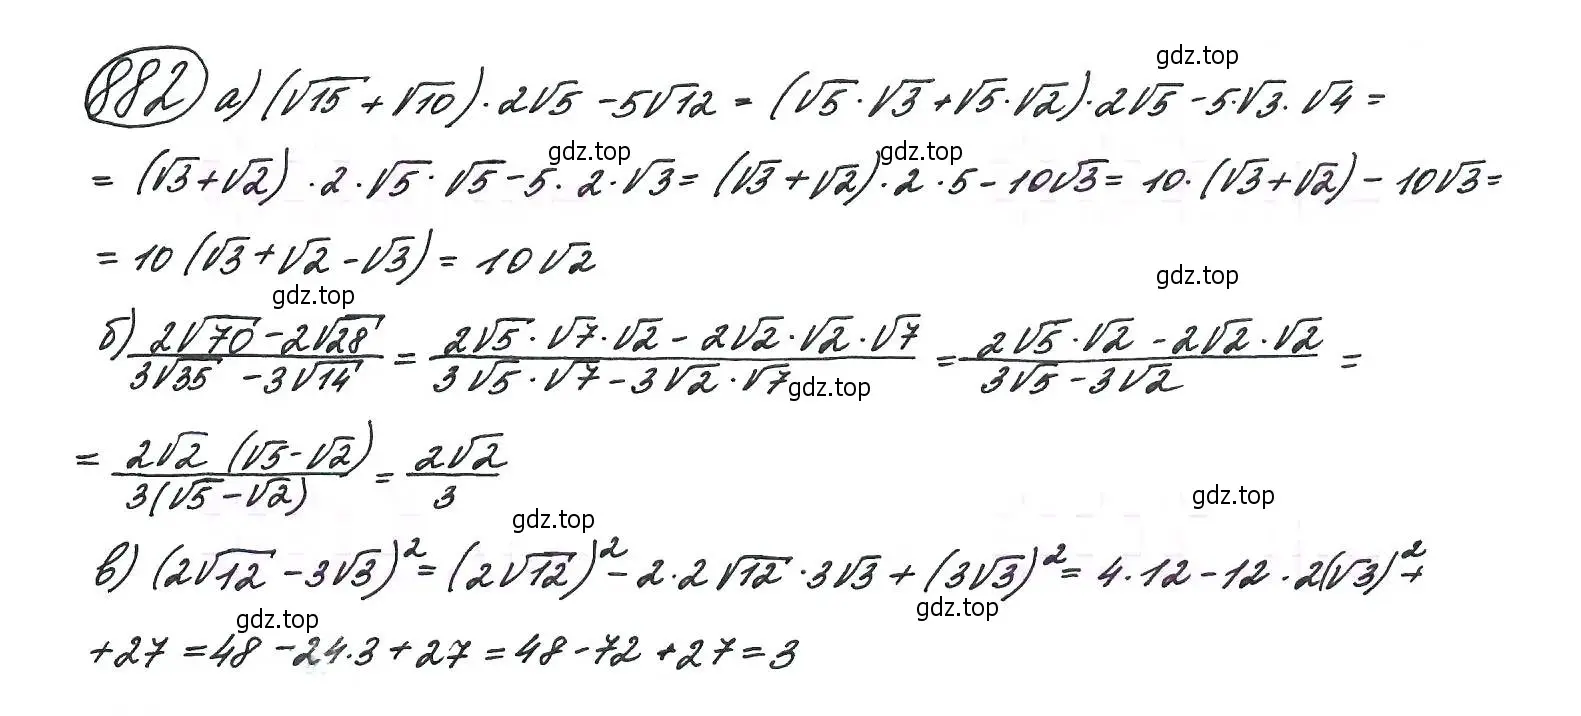 gdz.top
882 а) (√15 + √10) · 2√5 − 5√12 = (√5 · √3 + √5 · √2) · 2√5 − 5 · √3 · √4 =
gdz.top gdz.top
= (√3 + √2) · 2 · √5 · √5 − 5 · 2 · √3 = (√3 + √2) · 2 · 5 − 10√3 = 10 · (√3 + √2) − 10√3 =
= 10 (√3 + √2 − √3) = 10√2
gdz.top gdz.top
б) (2√70 − 2√28)/(3√35 − 3√14) = (2√5 · √7 · √2 − 2√2 · √2 · √7)/(3√5 · √7 − 3√2 · √7) = (2√5 · √2 − 2√2 · √2)/(3√5 − 3√2) =
gdz.top
= (2√2 (√5 − √2))/(3(√5 − √2)) = 2√2/3
gdz.top gdz.top
в) (2√12 − 3√3)² = (2√12)² − 2 · 2√12 · 3√3 + (3√3)² = 4 · 12 − 12 · 2(√3)² +
gdz.top gdz.top
+ 27 = 48 − 24 · 3 + 27 = 48 − 72 + 27 = 3